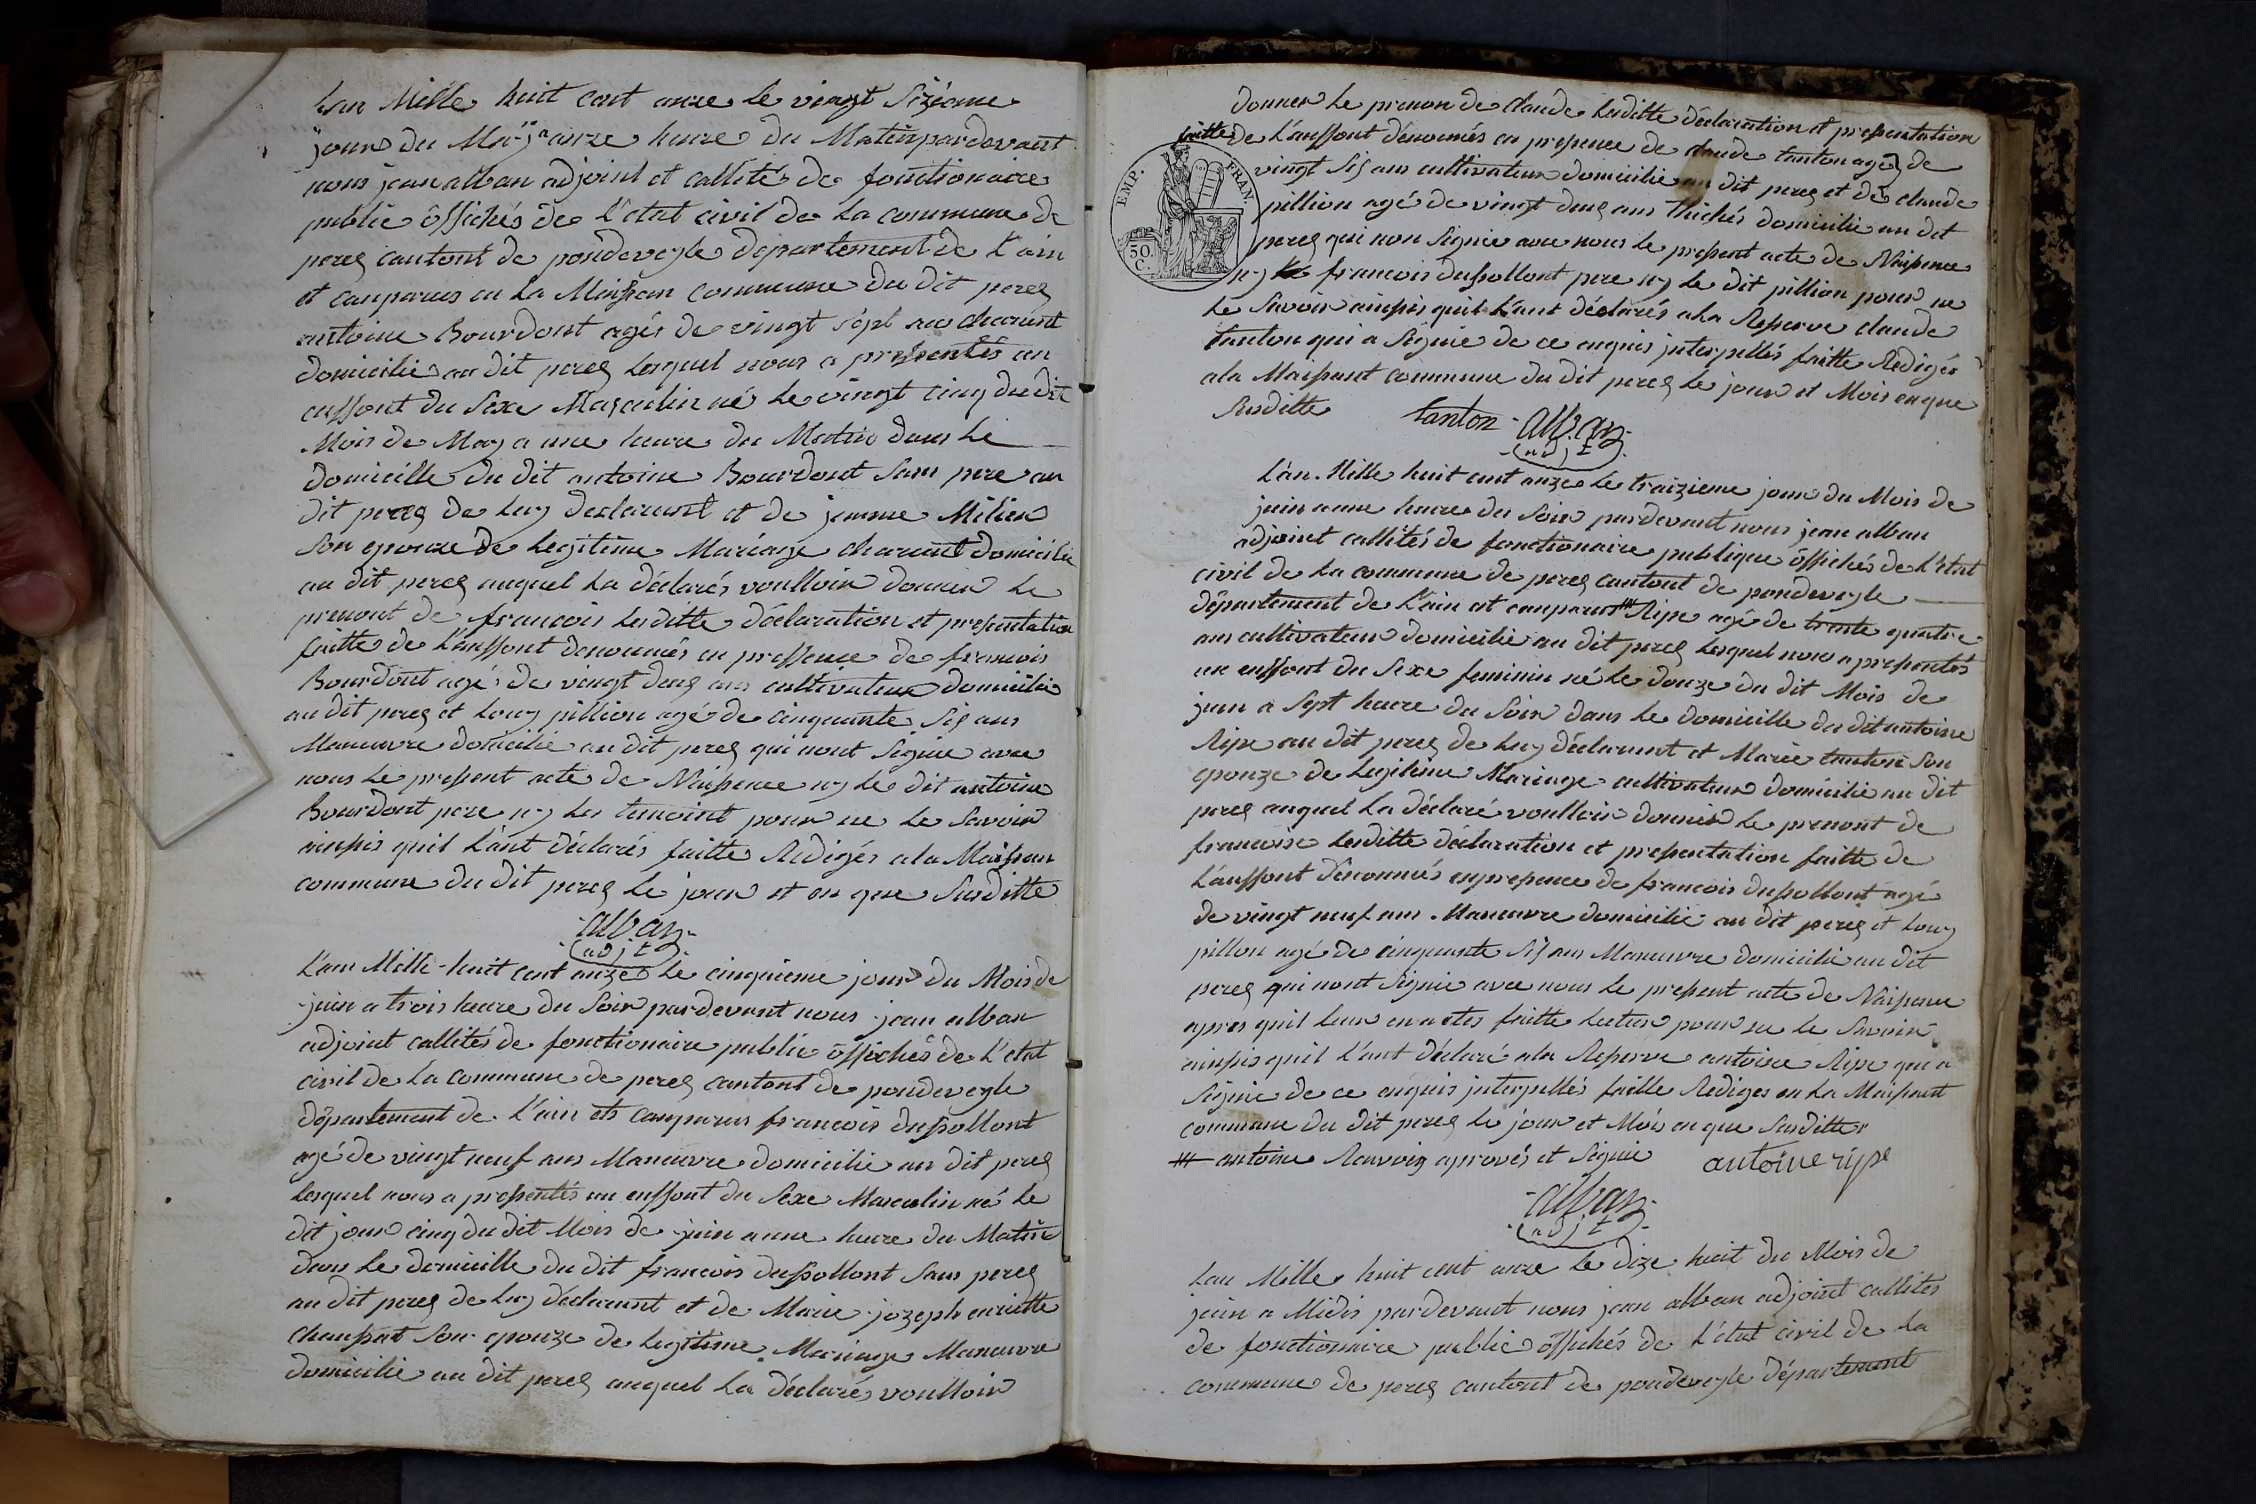 L'an Mille huit cent onze le vingt sizieme
jour du May a onze heure du Matin pardevant
nous jean alban adjoint et callités de fonctionaire
public õffichés de L'etat civil de La commune de
perex cantont de pondeveyle departement de L'ain
et comparus en La Maison commune du dit perex
antoine Bourdont agés de vingt sept ans charont
domicilie au dit perex Lesquel nous a presentés un
enffont du sexe Masculin né Le vingt cinq du dit
Mois de May a une heure du Matin dans Le
domicille du dit antoine Bourdont sam pere au
dit perex de Luy declarant et de jeanne Milieu
son epouze de Legitime Mariage charont domicilie
au dit perex auquel La déclarés voulloir donner Le
prenont de francois Lesditte déclaration et presentation
faitte de L'anffont denoumés en pressence de francois
Bourdont agé de vingt deux ans cultivateur domicilie
au dit perex et Louy pillion agé de cinquante six ans
Maneuvre domicilie au dit perex qui nont signie avec
nous Le present acte de Naissence ny Le dit antoine
Bourdont pere ny Les temoint pour ne Le savoir
ainssis quil L'ant déclarés faitte Redigés a la Maison
commune du dit perex Le jour et en que susditte
alban
adjt
L'an Mille huit cent onze Le cinquieme jour du Mois de
juin a trois heure du soir pardevant nous jean alban
adjoint callités de fonctionaire public õffichés de L'etat
civil de La commune de perex cantont de pondeveyle
département de L'ain et comparus francois dupollont
agé de vingt neuf ans Maneuvre domicilie au dit perex
Lesquel nous a presentés un enffont du sexe Masculin né Le
dit jour cinq du dit Mois de juin a une heure du Matin
dans Le domicille du dit francois dupollont sam perex
au dit perex de Luy déclarant et de Marie jozeph enriette
chanssat son epouze de Legitime Mariage Maneuvre
domicilie au dit perex auquel La déclarés voulloir
donner Le prenon de claude Lesditte déclaration et presentation
faitte de L'anffont dénoumés en presence de claude tanton agé de
vingt six ans cultivateur domicilie au dit perex et de claude
pillion agé de vingt deux ans domicilie au dit
perex qui non signie avec nous le present acte de Naissence
ny francois dupollont pere ny Le dit pillion pour ne
Le savoir ainssis quil L'ant déclarés a La Reserve claude
tanton qui a signie de ce enquis interpellés faitte Redigés
a la Maissont commune du dit perex Le jour et Mois en que
susditte
EMP. FRAN.
50. C.
tanton alban
adjt
L'an Mille huit cent onze Le traizieme jour du Mois de
juin a une heure du soir pardevant nous jean alban
adjoint callités de fonctionaire publique õffichés de L'etat
civil de La commune de perex cantont de pondeveyle
département de L'ain et comparus # Ripe agé de trente quatre
ans cultivateur domicilie au dit perex Lesquel nous a presentés
un enffont du sexe feminin né Le douze du dit Mois de
juin a sept heure du soir dans Le domicille du dit antoine
Ripe au dit perex de Luy déclarant et Marie tanton son
epouze de Legitime Mariage cultivateur domicilie au dit
perex auquel La déclaré voulloir donner Le prenont de
francoise Lesditte déclaration et presentation faitte de
L'anffont dénonmés en presence de francois dupollont agé
de vingt neuf ans Maneuvre domicilie au dit perex et Louy
pillon agé de cinquante six ans Maneuvre domicilie au dit
perex qui nont signie avec nous Le present acte de Naissence
apres quil Leur en a etes faitte Lecture pour ne Le savoir
ainssis quil L'ant déclaré a la Reserve antoine Ripe qui a
signie de ce enquis interpellés faitte Rediges en La Maissont
commune du dit perex Le jour et Mois en que susditte
# antoine Renvoix aprovés et signie antoine ripe
alban
adjt
L'an Mille huit cent onze Le dize huit du Mois de
juin a Midis pardevant nous jean alban adjoint callites
de fonctionnaire public õffichés de L'état civil de La
commune de perex cantont de pondeveyle département